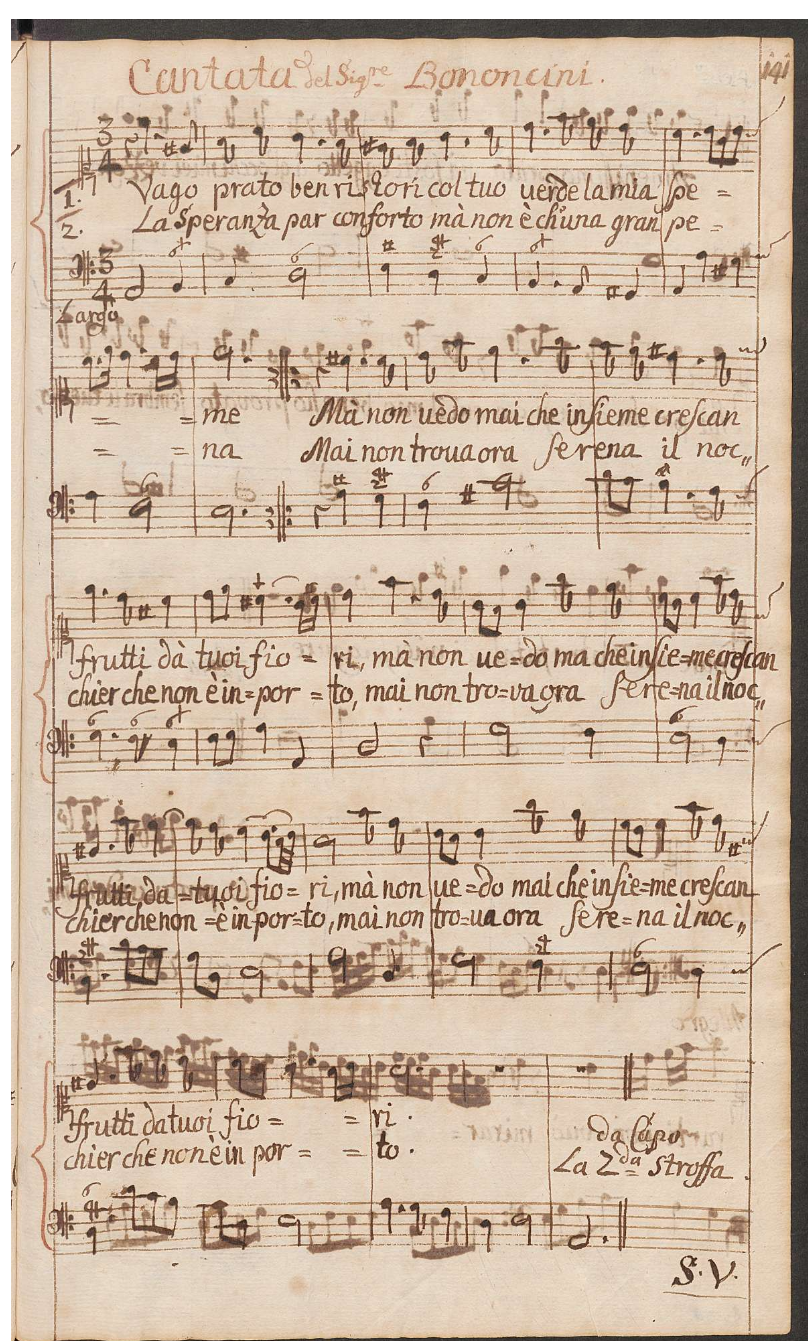 Cantata del Sig.re Bononcini.
141
3 4
1. Vago prato ben ristori col tuo verde la mia spe =
2. La Speranza par conforto mà non è ch'una gran pe =
3 4
Largo
= = me Mà non vedo mai che insieme crescan
= = na Mai non trova ora serena il noc„
frutti dà tuoi fio = ri, mà non ve=do ma che insie=me crescan
chier che non è in=por = to, mai non tro=va ora sere=na il noc„
frutti, da = tuoi fio = ri, mà non ve =do mai che insie=me crescan
chier che non =è in por=to, mai non tro=va ora sere=na il noc„
frutti da tuoi fio = = ri .
chier che non è in por = = to .
da Capo
La 2da Stroffa .
S. V.